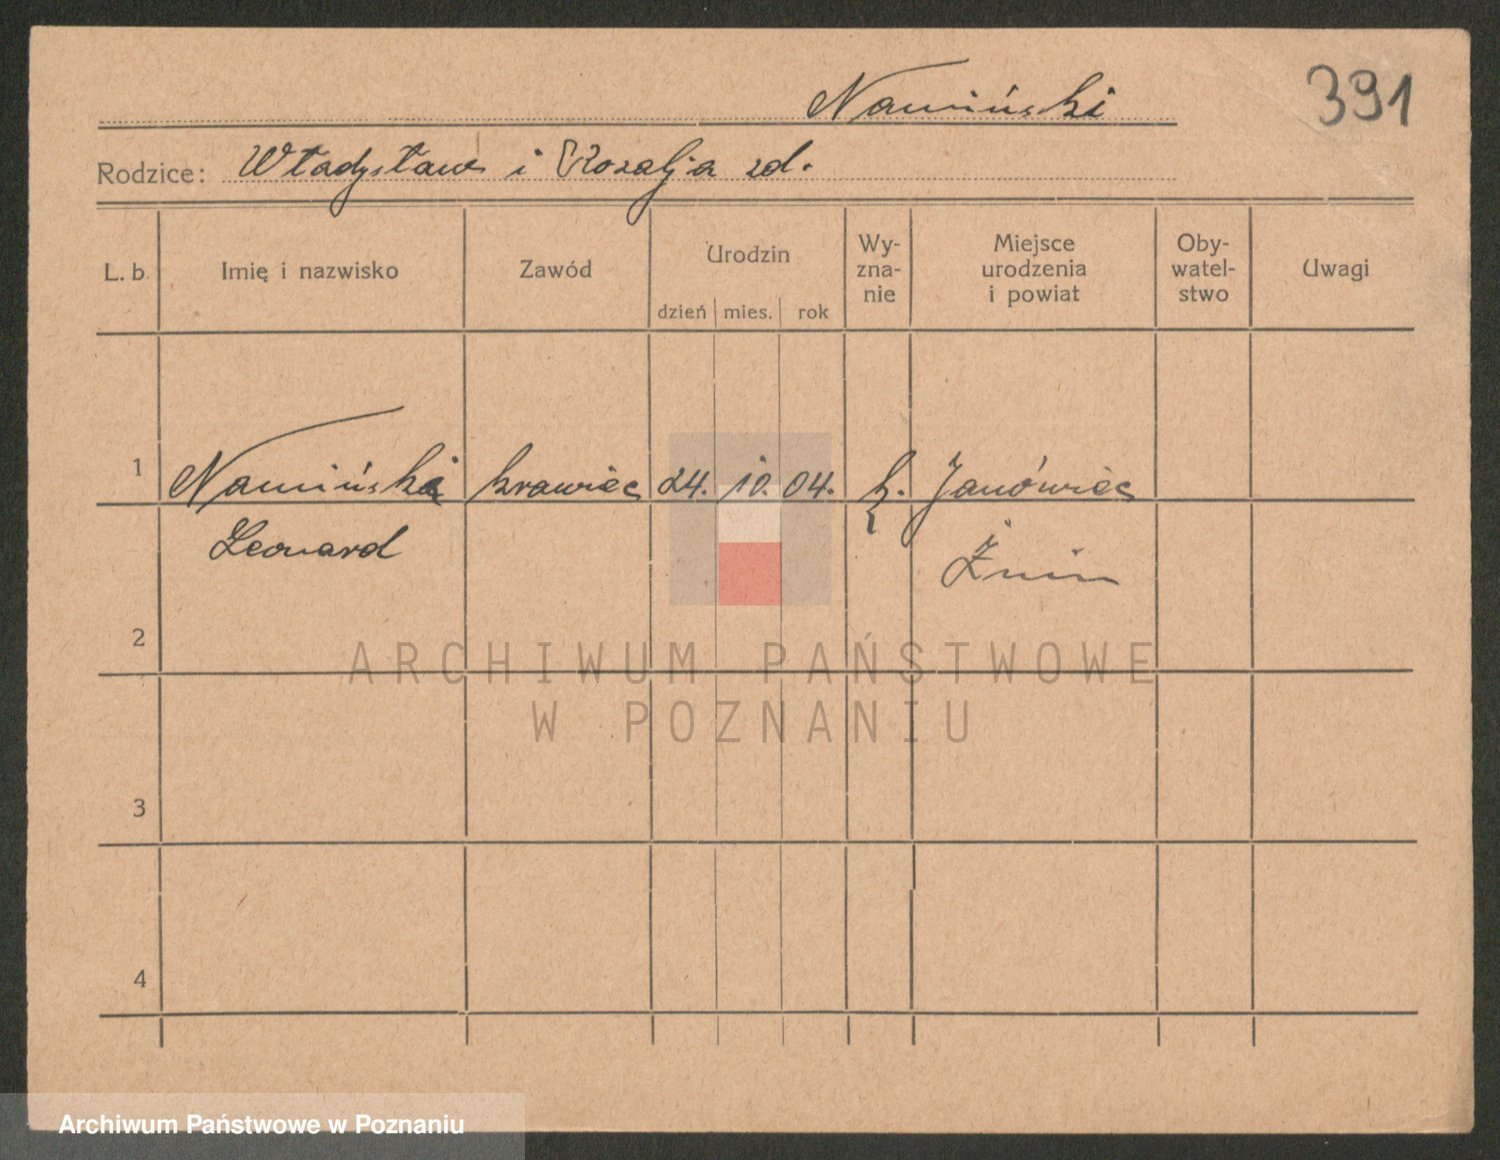 Namiński
391
Rodzice: Władysław i Rozalja zd.
L. b. Imię i nazwisko Zawód Urodzin Wy-zna-nie Miejsce urodzenia i powiat Oby-watel-stwo Uwagi
dzień mies. rok
1 Namiński krawiec 24. 10. 04. k. Janówiec
Leonard Żnin
2
ARCHIWUM PAŃSTWOWE
W POZNANIU
3
4
Archiwum Państwowe w Poznaniu